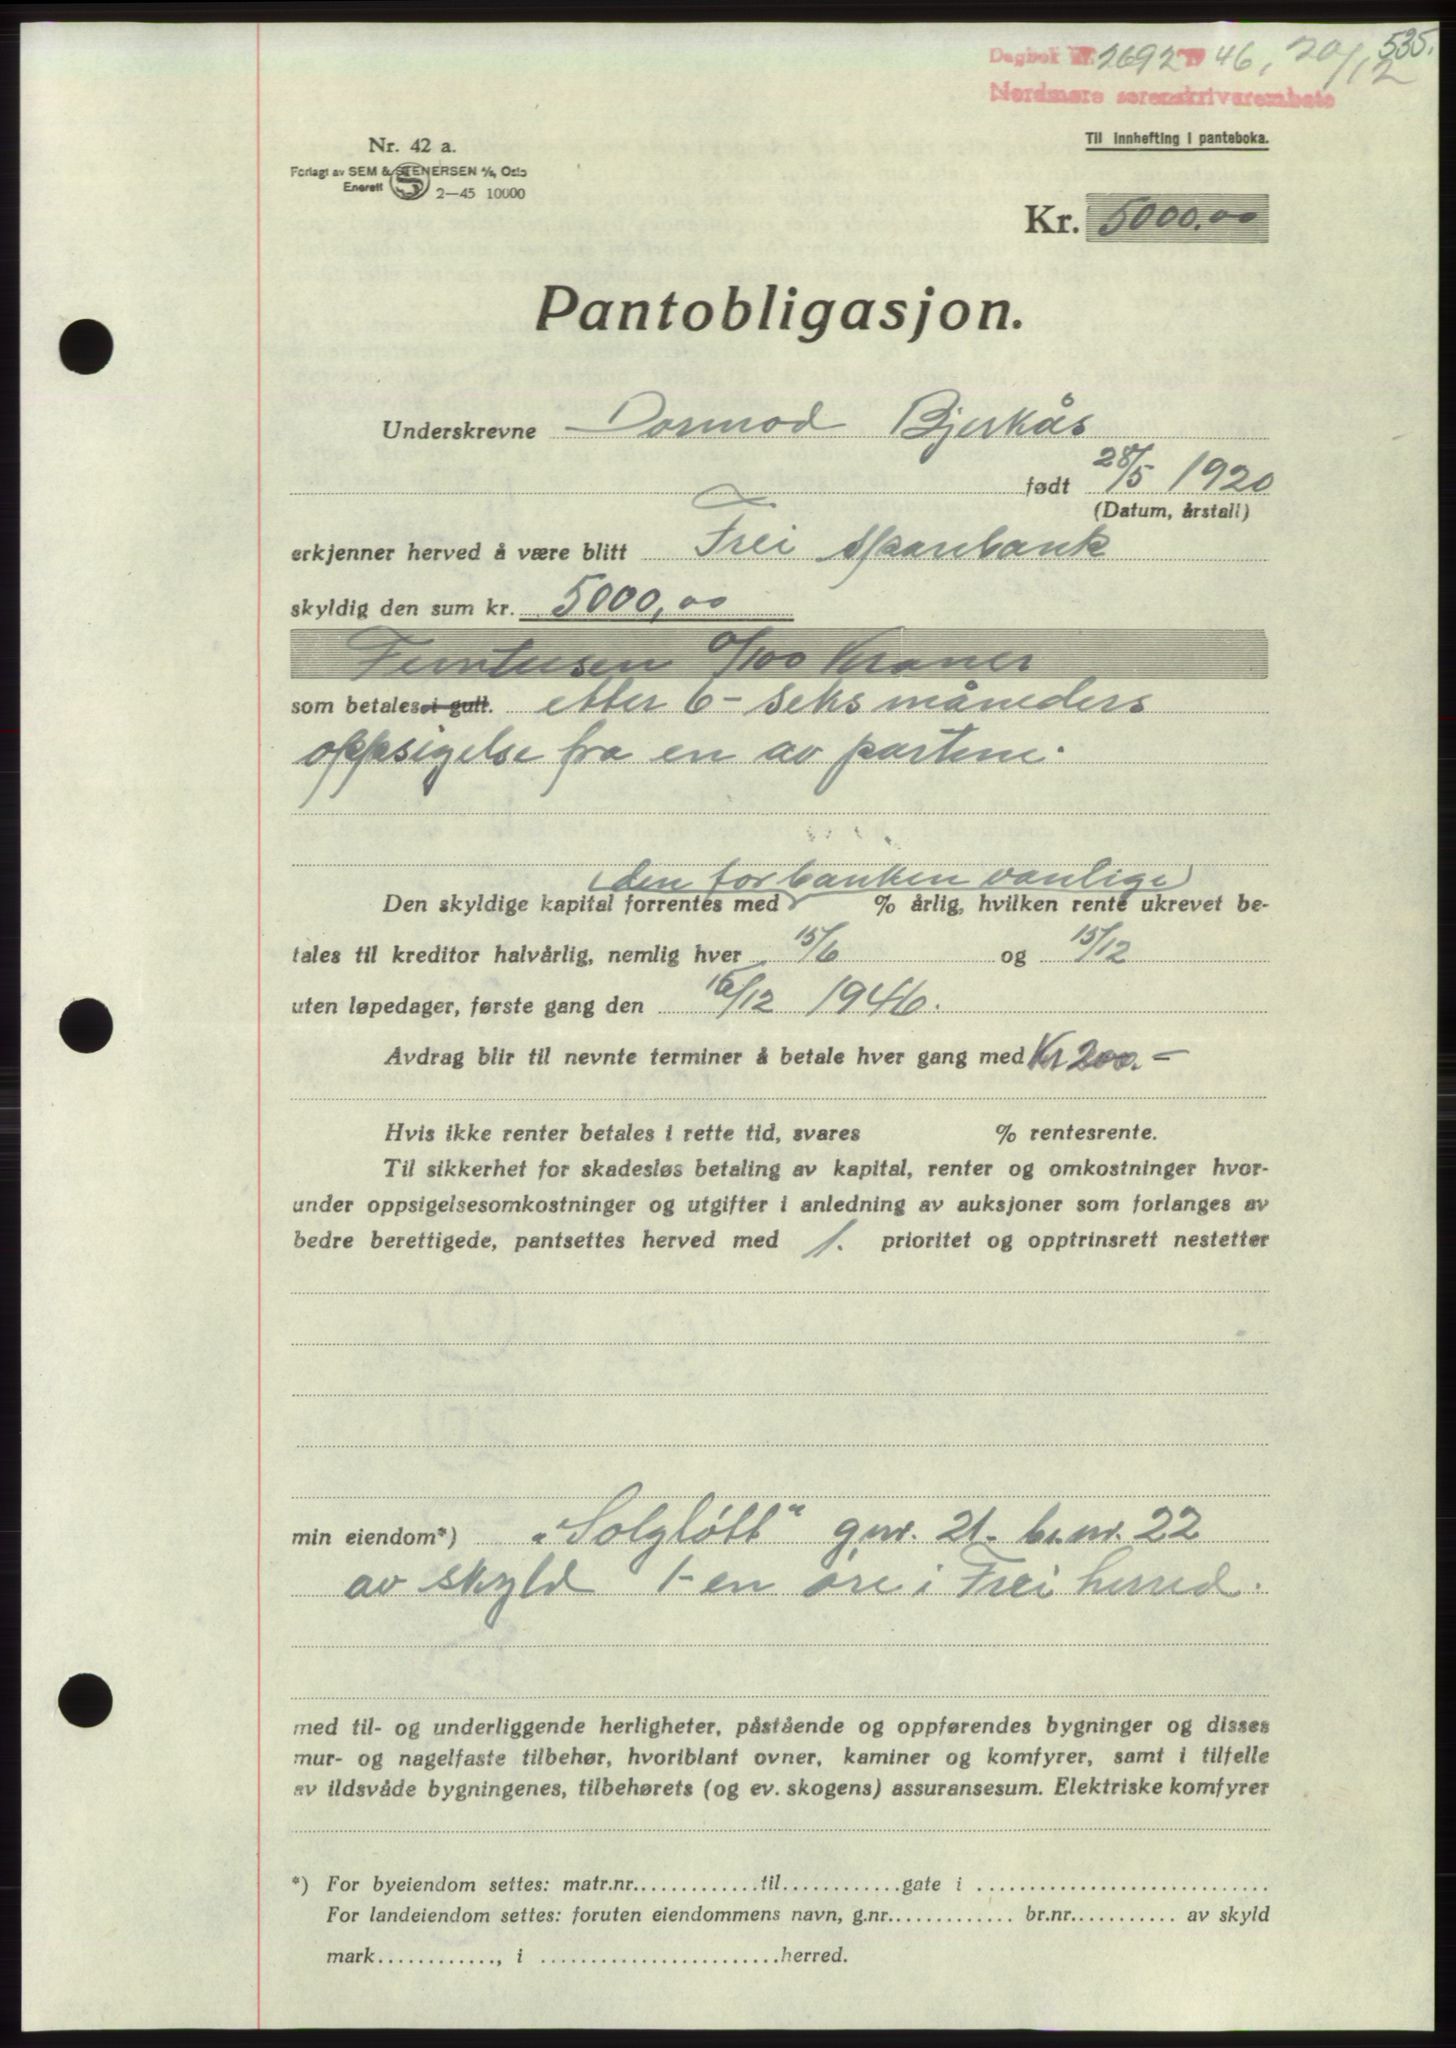 535.
Dagbok nr. 2692 19 46, 20/12
Nordmøre sorenskriverembete
Nr. 42 a.
Til innhefting i panteboka.
Forlagt av SEM & STENERSEN A/S, Oslo
Enerett 2—45 10000
Kr. 5000.00
Pantobligasjon.
Underskrevne Dormod Bjerkås
født 28/5 1920
(Datum, årstall)
erkjenner herved å være blitt Frei Sparebank
skyldig den sum kr. 5000,00
Femtusen 0/100 Kroner
som betales i gull. etter 6 - seks måneders
oppsigelse fra en av partene.
(den for banken vanlige)
Den skyldige kapital forrentes med % årlig, hvilken rente ukrevet be-
tales til kreditor halvårlig, nemlig hver 15/6 og 15/12
uten løpedager, første gang den 15/12 1946.
Avdrag blir til nevnte terminer å betale hver gang med Kr 200.-
Hvis ikke renter betales i rette tid, svares % rentesrente.
Til sikkerhet for skadesløs betaling av kapital, renter og omkostninger hvor-
under oppsigelsesomkostninger og utgifter i anledning av auksjoner som forlanges av
bedre berettigede, pantsettes herved med 1. prioritet og opptrinsrett nestetter
min eiendom*) „Solgløtt" g.nr. 21. br.nr. 22
av skyld 1 - en øre i Frei herred.
med til- og underliggende herligheter, påstående og oppførendes bygninger og disses
mur- og nagelfaste tilbehør, hvoriblant ovner, kaminer og komfyrer, samt i tilfelle
av ildsvåde bygningenes, tilbehørets (og ev. skogens) assuransesum. Elektriske komfyrer
*) For byeiendom settes: matr.nr.............til.............gate i ..............................
For landeiendom settes: foruten eiendommens navn, g.nr............. br.nr........... av skyld
mark............, i .........................herred.